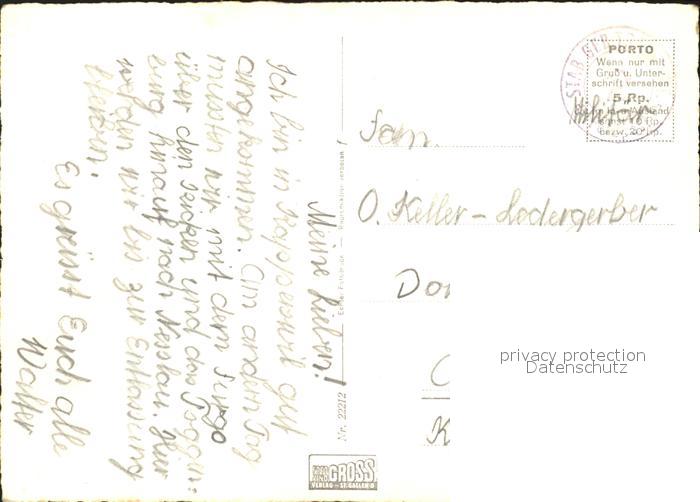 Meine Lieben!
Ich bin in Rapperswil gut
angekommen. Am andern Tag
mussten wir mit dem Furgo
über den Ricken und das Toggen=
burg hinauf nach Nesslau. Hier
werden wir bis zur Entlassung
bleiben.
Es grüsst Euch alle
Walter
Nr. 22212
Echte Fotografie — Reproduktion verboten!
GROSS
VERLAG - ST. GALLEN O
STAB
PORTO
Wenn nur mit
Gruß u. Unter-
schrift versehen
5 Rp.
Militär
bezw. 20 Rp.
Fam.
O. Keller - Ledergerber
Do
K
privacy protection
Datenschutz